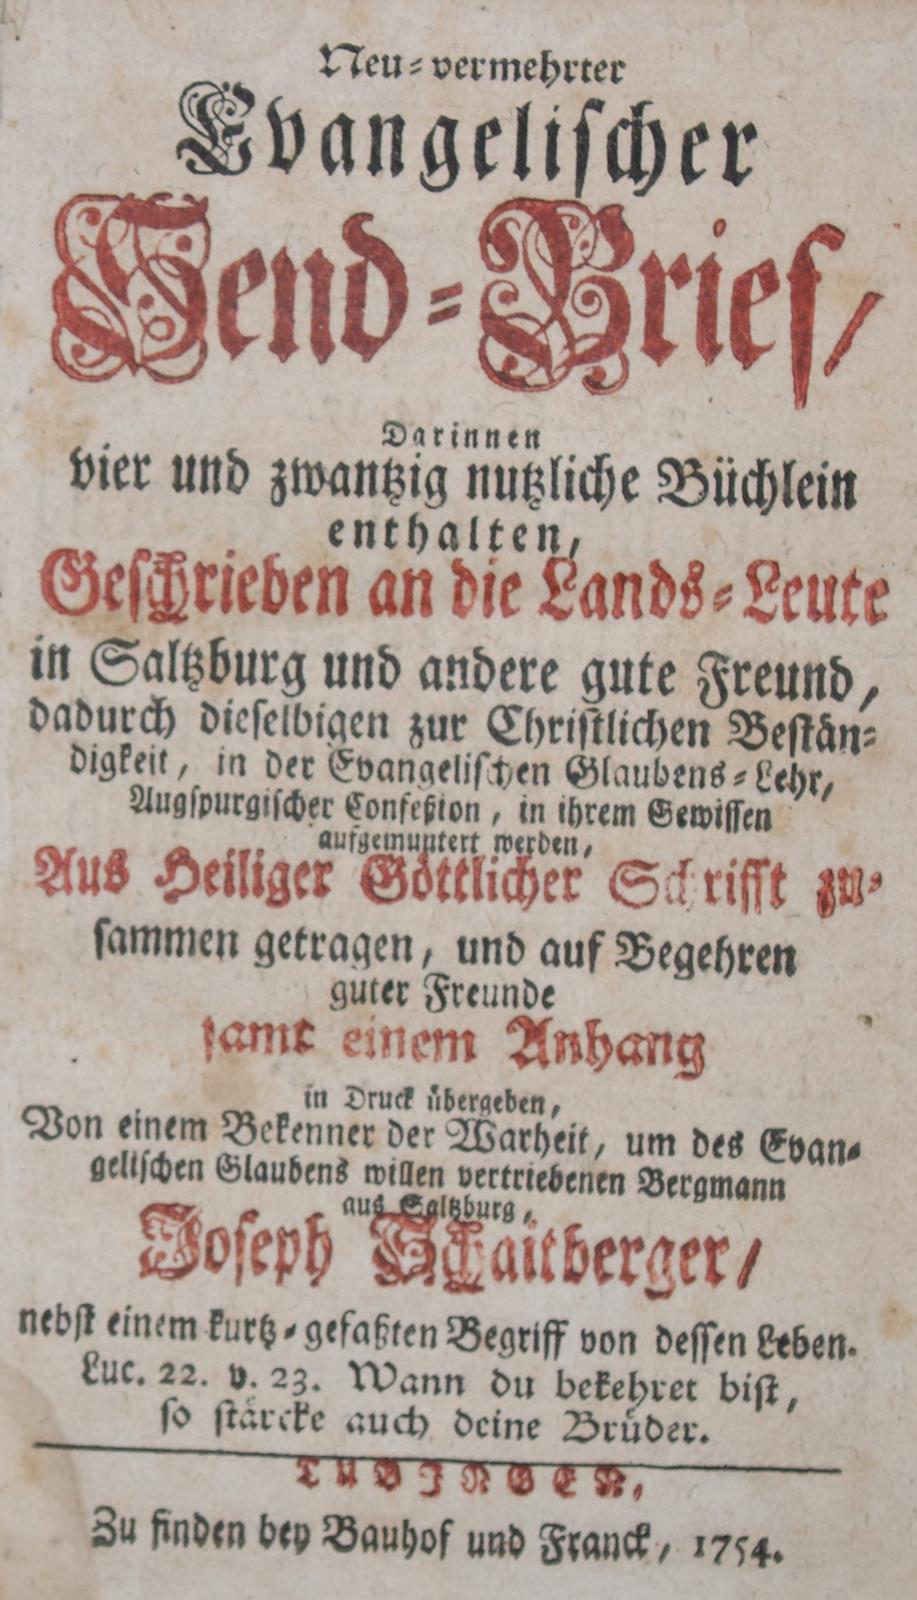 Neu-vermehrter
Evangelischer
Send-Brief/
Darinnen
vier und zwantzig nutzliche Büchlein
enthalten,
Geschrieben an die Lands-Leute
in Saltzburg und andere gute Freund,
dadurch dieselbigen zur Christlichen Bestän-
digkeit, in der Evangelischen Glaubens-Lehr,
Augspurgischer Confeßion, in ihrem Gewissen
aufgemuntert werden,
Aus Heiliger Göttlicher Schrifft zu-
sammen getragen, und auf Begehren
guter Freunde
samt einem Anhang
in Druck übergeben,
Von einem Bekenner der Warheit, um des Evan-
gelischen Glaubens willen vertriebenen Bergmann
aus Saltzburg,
Joseph Schaitberger/
nebst einem kurtz-gefaßten Begriff von dessen Leben.
Luc. 22. v. 23. Wann du bekehret bist,
so stärcke auch deine Brüder.
TUBINGEN,
Zu finden bey Bauhof und Franck, 1754.